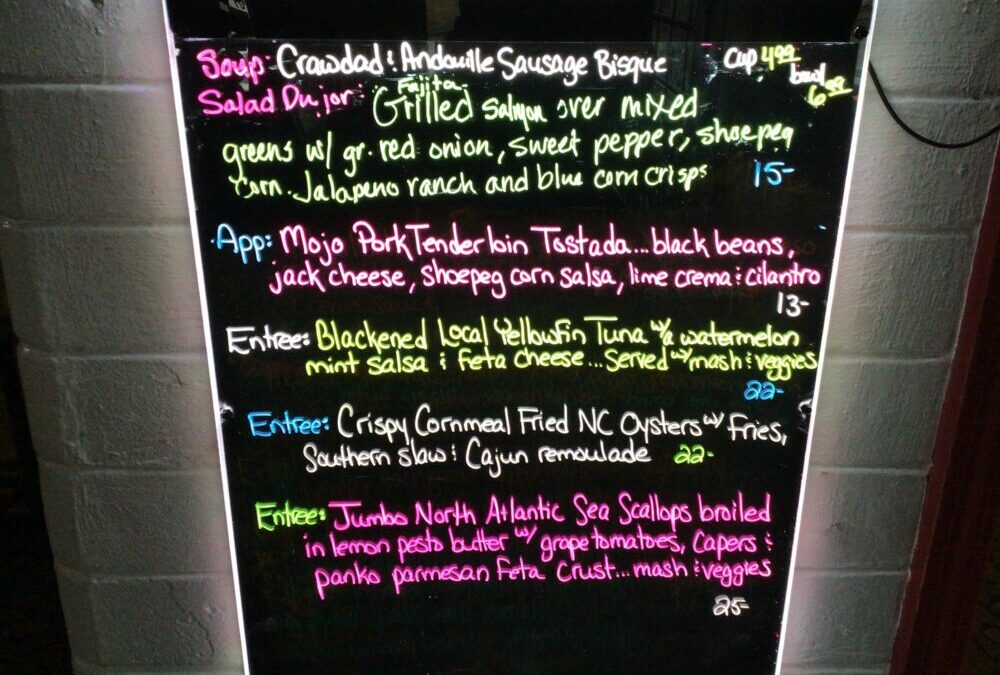 Soup: Crawdad & Andouille Sausage Bisque cup 4.99
bowl 6.99
Salad Dujor: Fajita
Grilled salmon over mixed
greens w/ gr. red onion, sweet pepper, shoepeg
corn. Jalapeno ranch and blue corn crisps 15-
App: Mojo Pork Tenderloin Tostada...black beans,
jack cheese, shoepeg corn salsa, lime crema & cilantro
13-
Entree: Blackened Local Yellowfin Tuna w/a watermelon
mint salsa & feta cheese...Served w/ mash & veggies
22-
Entree: Crispy Cornmeal Fried NC Oysters w/ fries,
Southern slaw & Cajun remoulade 22-
Entree: Jumbo North Atlantic Sea Scallops broiled
in lemon pesto butter w/ grape tomatoes, capers &
panko parmesan feta crust...mash & veggies
25-